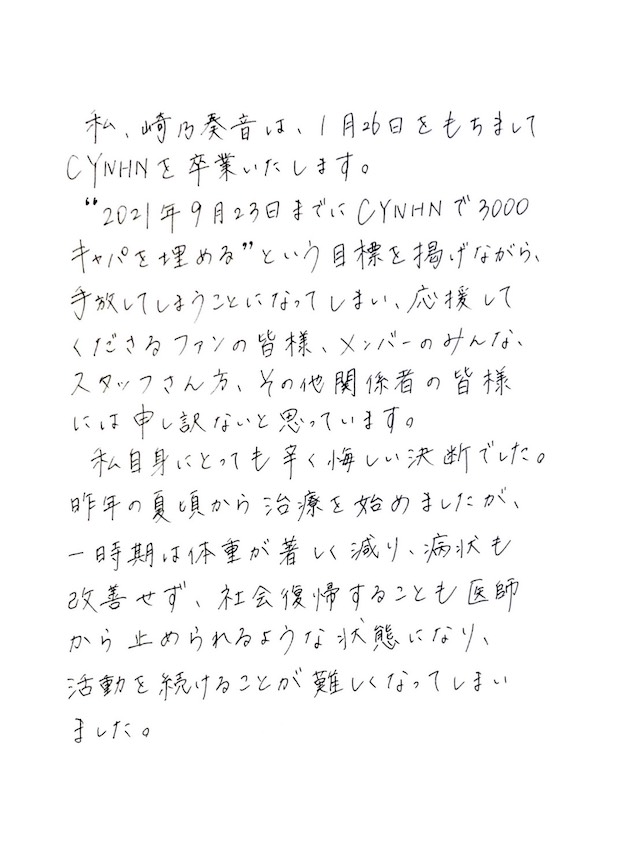 私、崎乃奏音は、1月26日をもちまして
CYNHNを卒業いたします。
“2021年9月23日までにCYNHNで3000
キャパを埋める”という目標を掲げながら、
手放してしまうことになってしまい、応援して
くださるファンの皆様、メンバーのみんな、
スタッフさん方、その他関係者の皆様
には申し訳ないと思っています。
私自身にとっても辛く悔しい決断でした。
昨年の夏頃から治療を始めましたが、
一時期は体重が著しく減り、病状も
改善せず、社会復帰することも医師
から止められるような状態になり、
活動を続けることが難しくなってしまい
ました。